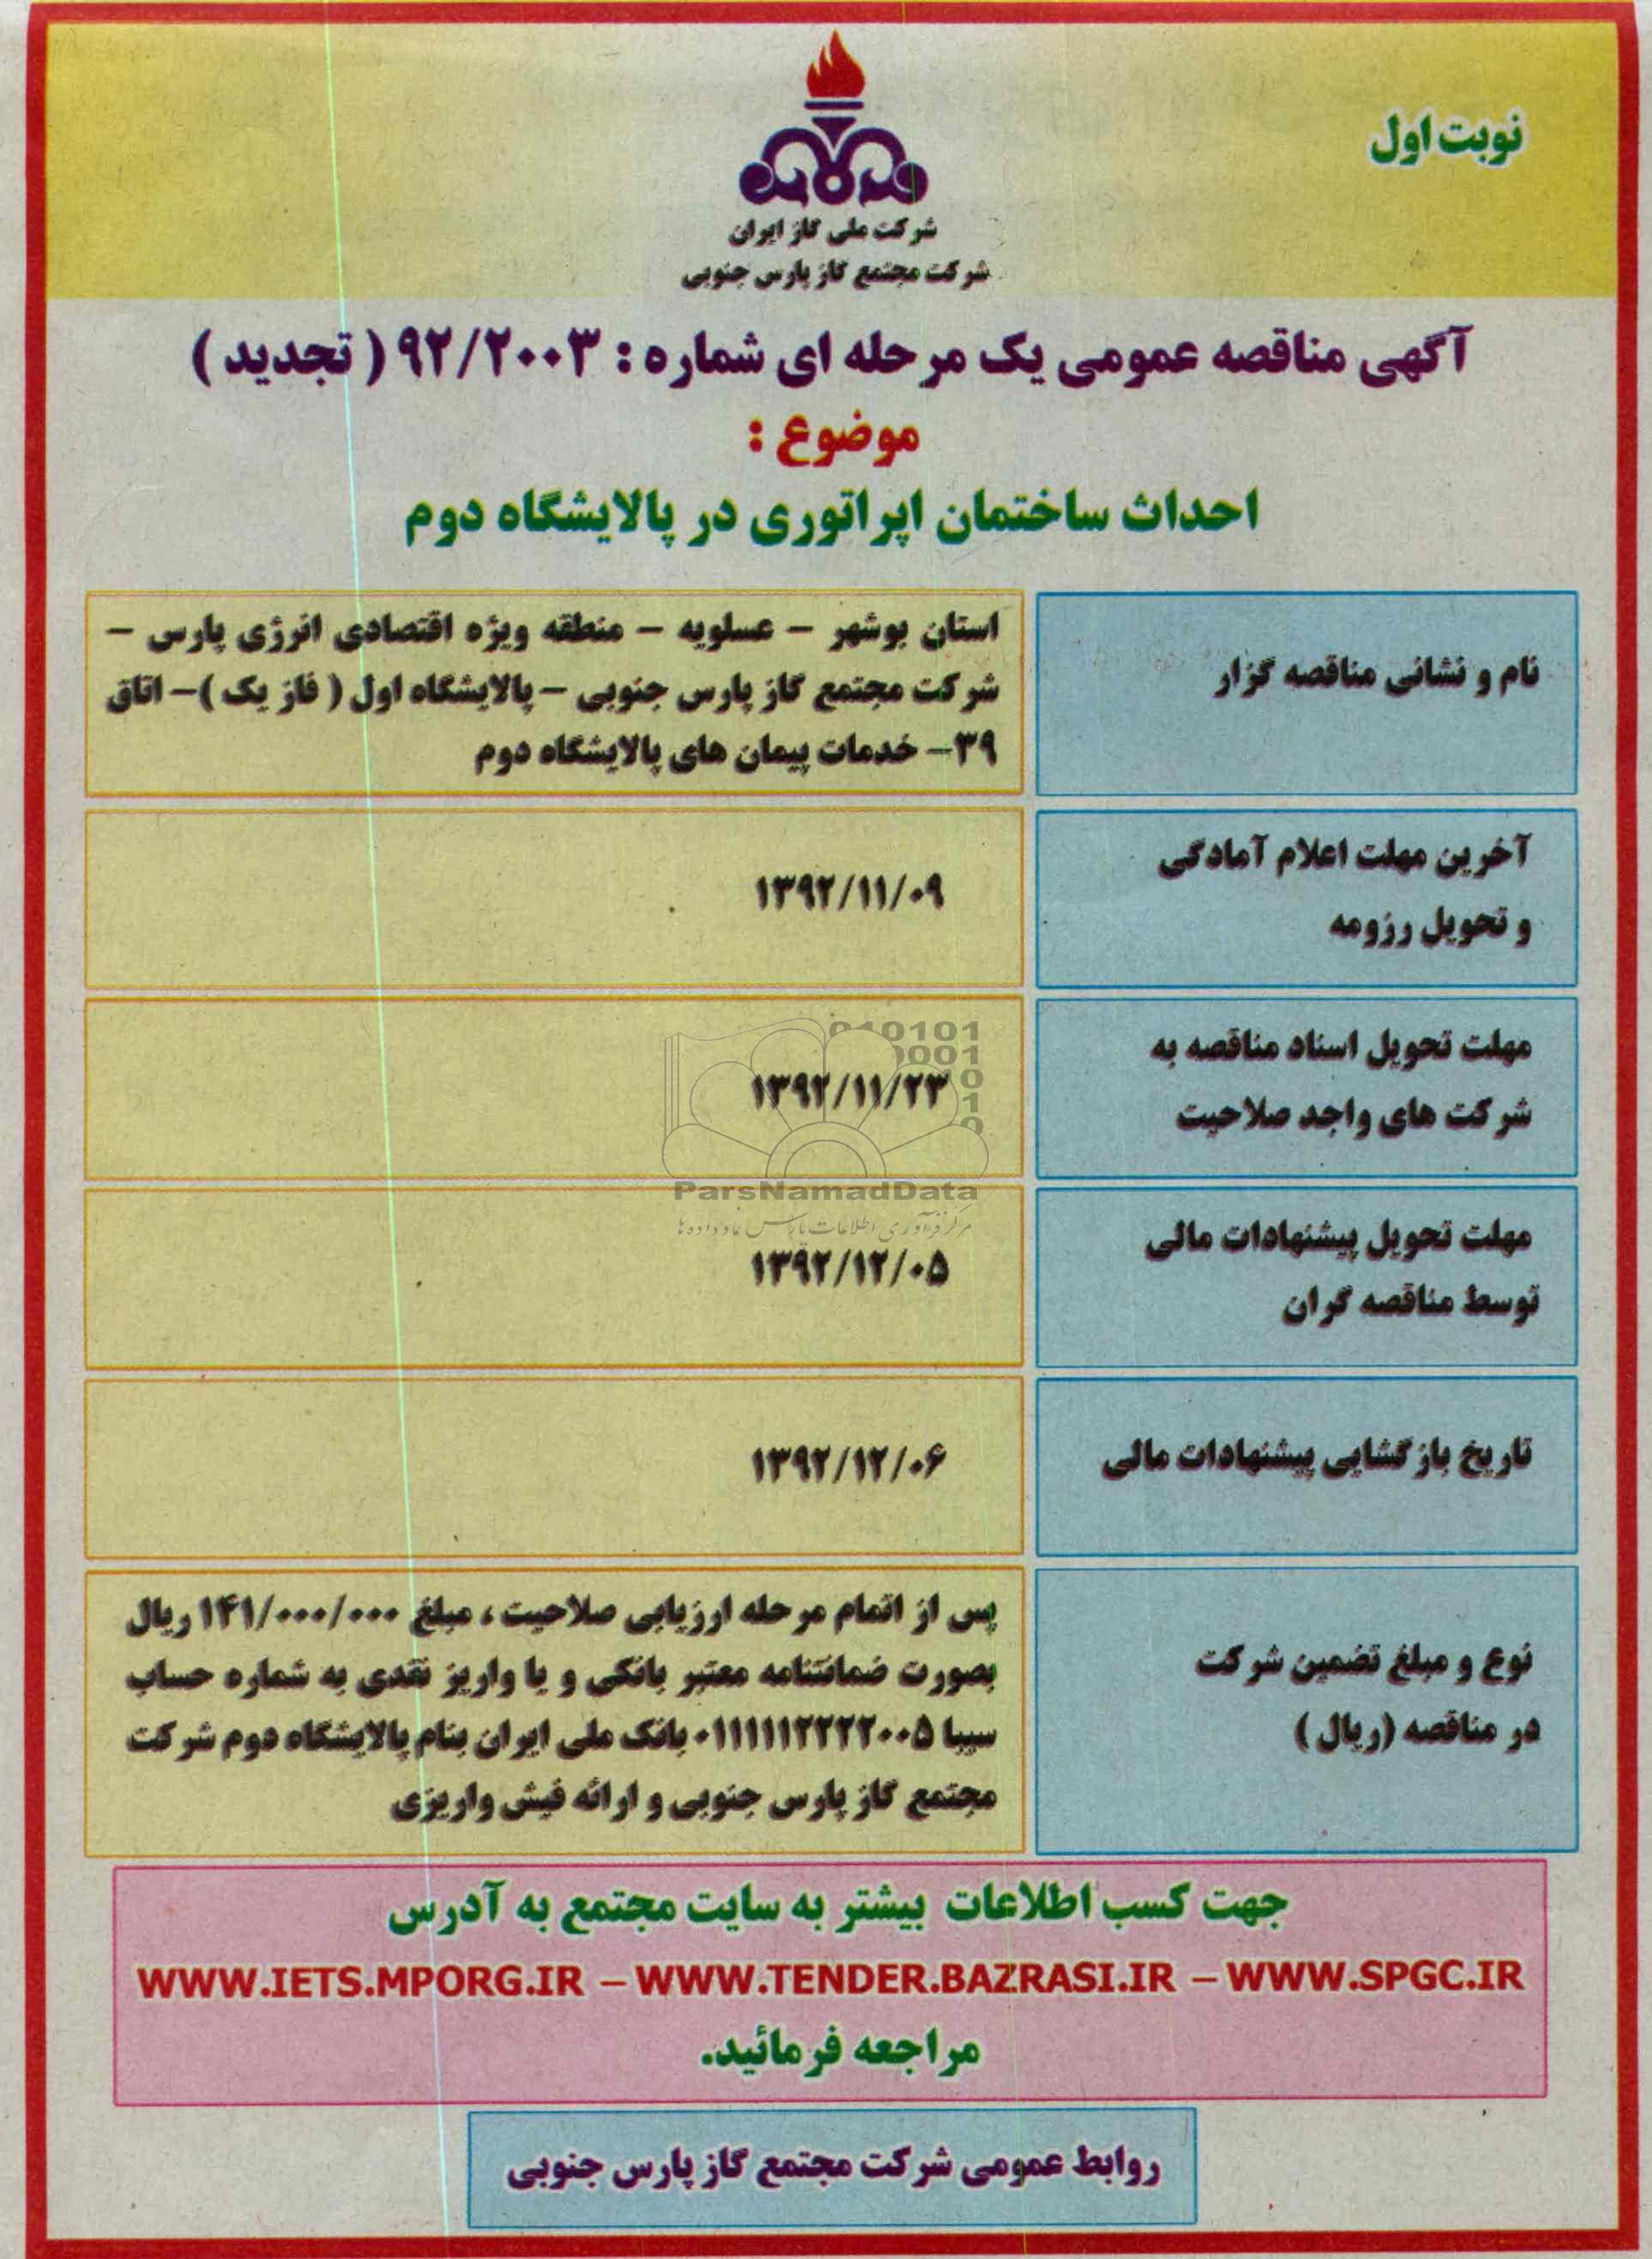 نوبت اول
شرکت ملی گاز ایران
شرکت مجتمع گاز پارس جنوبی
آگهی مناقصه عمومی یک مرحله ای شماره : ۹۲/۲۰۰۳ ( تجدید )
موضوع :
احداث ساختمان اپراتوری در پالایشگاه دوم
نام و نشانی مناقصه گزار
استان بوشهر – عسلویه – منطقه ویژه اقتصادی انرژی پارس –
شرکت مجتمع گاز پارس جنوبی – پالایشگاه اول ( فاز یک )– اتاق
۳۹– خدمات پیمان های پالایشگاه دوم
آخرین مهلت اعلام آمادگی
و تحویل رزومه
۱۳۹۲/۱۱/۰۹
مهلت تحویل اسناد مناقصه به
شرکت های واجد صلاحیت
۱۳۹۲/۱۱/۲۳
مهلت تحویل پیشنهادات مالی
توسط مناقصه گران
۱۳۹۲/۱۲/۰۵
تاریخ بازگشایی پیشنهادات مالی
۱۳۹۲/۱۲/۰۶
نوع و مبلغ تضمین شرکت
در مناقصه (ریال )
پس از اتمام مرحله ارزیابی صلاحیت ، مبلغ ۱۴۱/۰۰۰/۰۰۰ ریال
بصورت ضمانتنامه معتبر بانکی و یا واریز نقدی به شماره حساب
سیبا ۰۱۱۱۱۱۲۲۲۲۰۰۵ بانک ملی ایران بنام پالایشگاه دوم شرکت
مجتمع گاز پارس جنوبی و ارائه فیش واریزی
ParsNamadData
مرکز فرآوری اطلاعات پارس نماد داده ها
جهت کسب اطلاعات بیشتر به سایت مجتمع به آدرس
WWW.IETS.MPORG.IR – WWW.TENDER.BAZRASI.IR – WWW.SPGC.IR
مراجعه فرمائید.
روابط عمومی شرکت مجتمع گاز پارس جنوبی